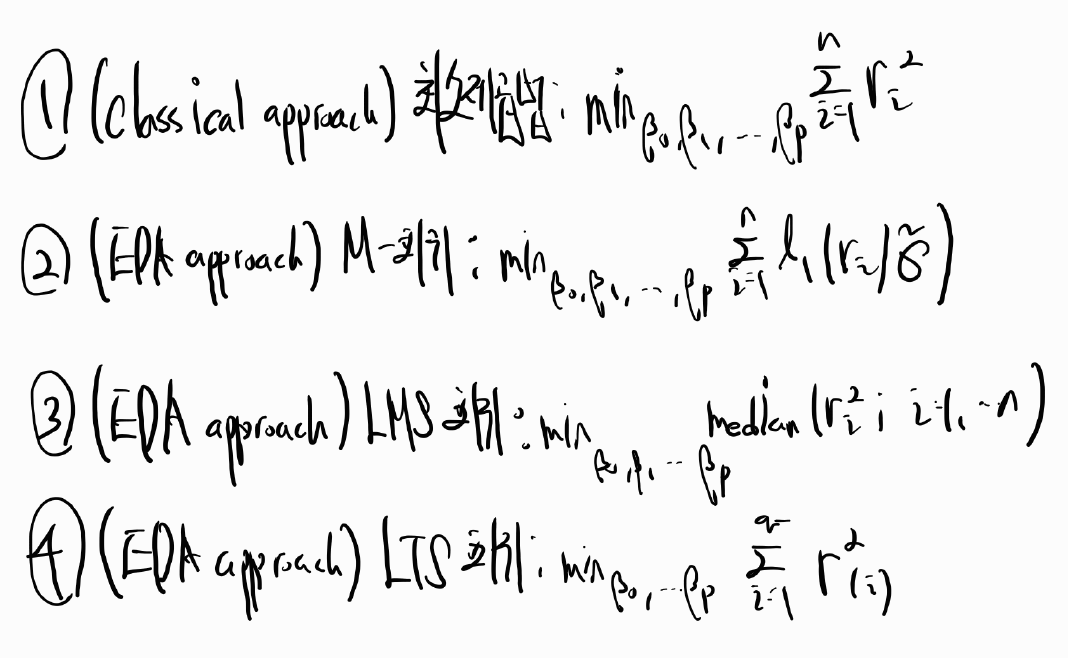 ① (Classical approach) 최소제곱법 : min_{β₀,β₁,...,βp} Σ_{i=1}^{n} r_i^2
② (EDA approach) M-회귀 : min_{β₀,β₁,...,βp} Σ_{i=1}^{n} l₁(r_i/σ̃)
③ (EDA approach) LMS 회귀 : min_{β₀,β₁,...βp} median(r_i^2 ; i=1,..n)
④ (EDA approach) LTS 회귀 : min_{β₀,...βp} Σ_{i=1}^{q} r_{(i)}^2